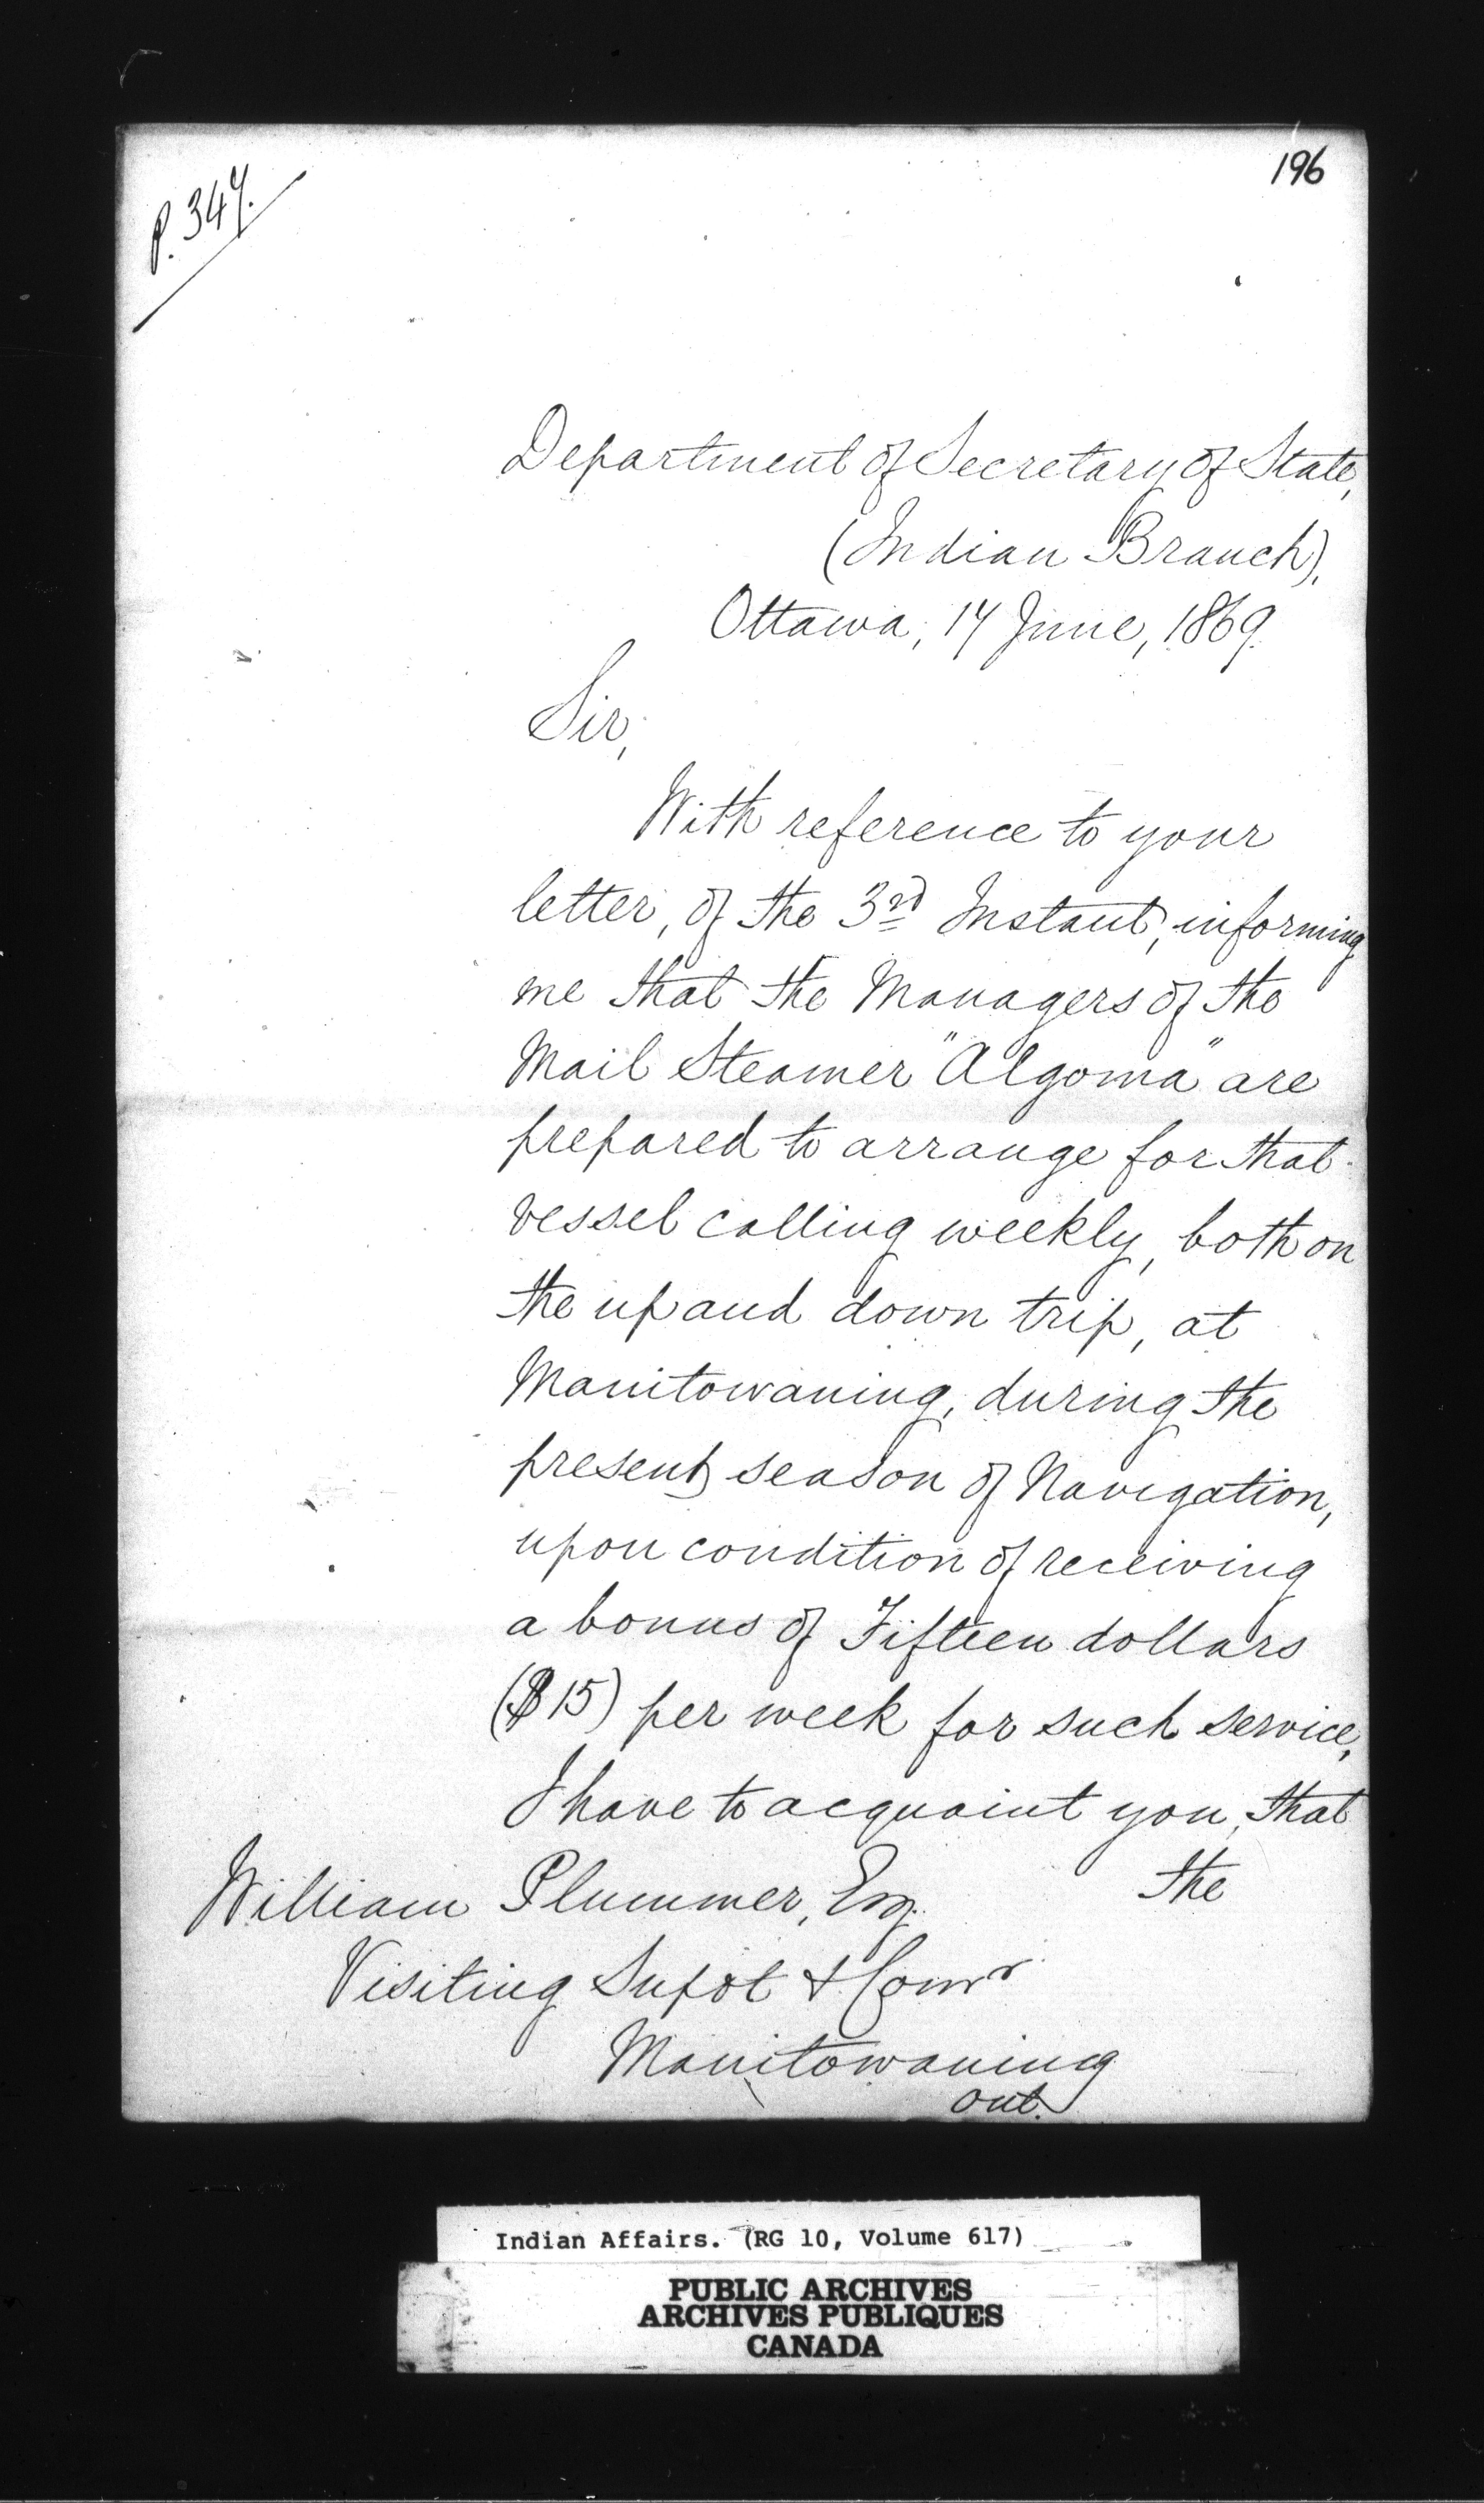 196
P. 347.
Department of Secretary of State,
(Indian Branch),
Ottawa, 17 June, 1869.
Sir,
With reference to your
letter, of the 3rd Instant, informing
me that the Managers of the
Mail Steamer "Algoma" are
prepared to arrange for that
vessel calling weekly, both on
the up and down trip, at
Manitowaning, during the
present season of Navigation,
upon condition of receiving
a bonus of Fifteen dollars
($15) per week for such service,
I have to acquaint you, that
the
William Plummer, Esq.
Visiting Supdt & Comr
Manitowaning
Ont.
Indian Affairs. (RG 10, Volume 617)
PUBLIC ARCHIVES
ARCHIVES PUBLIQUES
CANADA